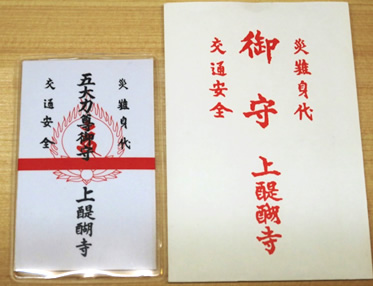 災難身代
五大力尊御守 上醍醐寺
交通安全
災難身代
御守 上醍醐寺
交通安全